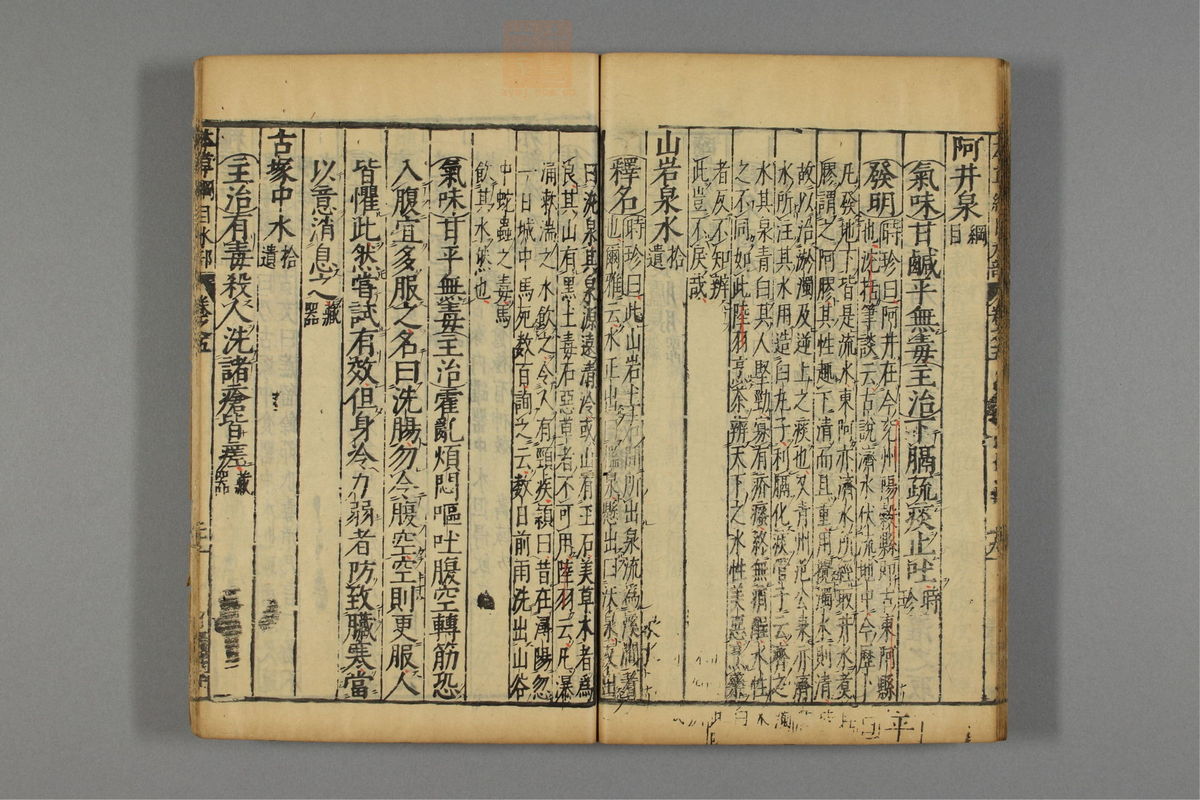 阿井泉綱目
氣味甘鹹平無毒主治下膈疏痰止吐時珍
發明時珍曰阿井在今兗州陽穀縣即古東阿縣
也沈括筆談云古說濟水伏流地中今歷下
凡發地下皆是流水東阿亦濟水所經取井水煑
膠謂之阿膠其性趣下清而且重用攪濁水則清
故以治淤濁及逆上之痰也又青州范公泉亦濟
水所注其水用造白丸子利膈化痰管子云齊之
水其泉青白其人堅勁寡有疥癢終無痟酲水性
之不同如此陸羽烹茶辨天下之水性美惡
者反不知辨
此豈不戾哉
山岩泉水拾遺
釋名時珍曰此山岩土石間所出泉流為溪澗者
也爾雅云水正出曰檻泉懸出曰沃泉仄出
曰氿泉其泉源遠清冷或山有玉石美草木者為
良其山有黑土毒石惡草者不可用陸羽云凡瀑
涌漱湍之水飲之令人有頸疾穎曰昔在潯陽忽
一日城中馬死數百詢之云數日前雨洗出山谷
中蛇蟲之毒馬
飲其水然也
氣味甘平無毒主治霍亂煩悶嘔吐腹空轉筋恐
入腹宜多服之名曰洗腸勿令腹空空則更服人
皆懼此然嘗試有效但身冷力弱者防致臟寒當
以意消息之藏器
古塚中水拾遺
主治有毒殺人洗諸瘡皆瘥藏器
本草綱目水部 卷之五